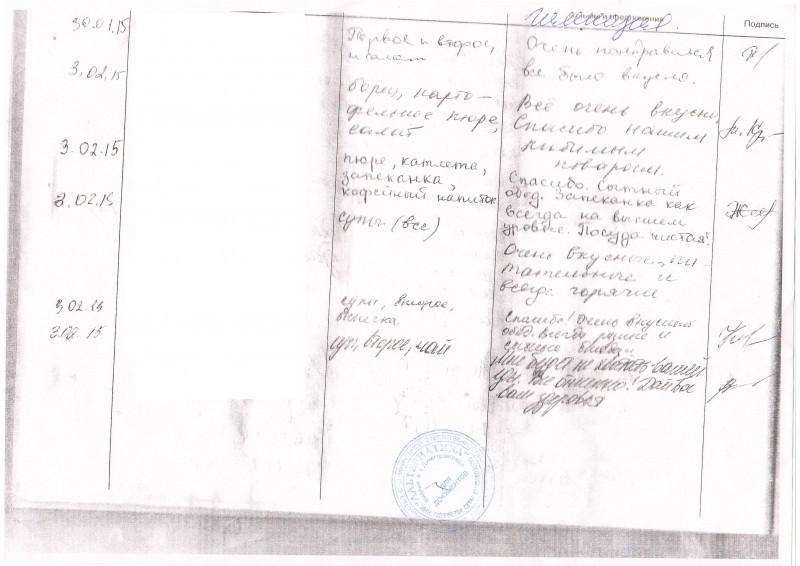 Подпись
30.01.15
Первое и второе,
и салат
Очень понравился
все было вкусно.
3.02.15
борщ, карто-
фельное пюре,
салат
Всё очень вкусно
Спасибо нашим
любимым
поварам.
3.02.15
пюре, катлета,
запеканка,
кофейный напиток
Спасибо. Сытный
обед. Запеканка как
всегда на высшем
уровне. Посуда чистая!
3.02.15
супы (все)
Очень вкусные, пи-
тательные и
всегда горячие
3.02.15
супы, второе,
выпечка
Спасибо! Очень вкусный
обед. всегда
3.02.15
суп, второе, чай
мне будет не хватать вашей
еды. Все отлично! Дай Бог
вам здоровья
"АЛЬТЕРНАТИВА"
ДЛЯ
ДОКУМЕНТОВ